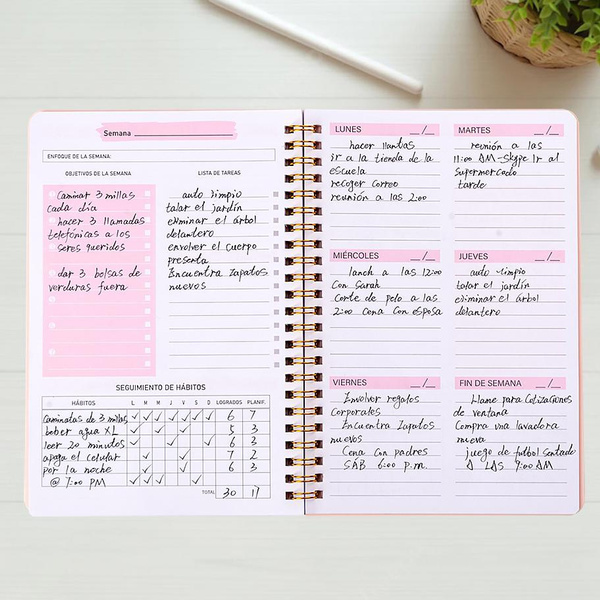 Semana
ENFOQUE DE LA SEMANA:
OBJETIVOS DE LA SEMANA
Caminar 3 millas
cada día
hacer 3 llamadas
telefónicas a los
seres queridos
dar 3 bolsas de
verduras fuera
LISTA DE TAREAS
auto limpio
talar el jardín
eliminar el árbol
delantero
envolver el cuerpo
presenta
Encuentra Zapatos
nuevos
SEGUIMIENTO DE HÁBITOS
HÁBITOS L M M J V S D LOGRADOS PLANIF.
caminatas de 3 millas ✓ ✓ ✓ ✓ ✓ ✓ ✓ 6 7
beber agua XL ✓ ✓ ✓ 5 3
leer 20 minutos ✓ ✓ ✓ 6 3
apaga el celular ✓ ✓ 7 2
por la noche ✓ ✓ ✓ 6 3
@ 7:00 PM ✓ ✓ ✓ ✓ ✓
TOTAL 30 17
LUNES __/__
hacer llantas
ir a la tienda de la
escuela
recoger correo
reunión a las 2:00
MARTES __/__
reunión a las
11:00 AM -Skype Ir al
supermercado
tarde
MIÉRCOLES __/__
lanch a las 12:00
Con Sarah
Corte de pelo a las
2:00 Cena Con esposa
JUEVES __/__
auto limpio
talar el jardín
eliminar el árbol
delantero
VIERNES __/__
Envolver regalos
Corporates
Encuentra Zapatos
nuevos
Cena con padres
SÁB 6:00 p.m.
FIN DE SEMANA __/__
Llame para Cotizaciones
de ventana
Compra una lavadora
nueva
juego de futbol sentado
A LAS 9:00 AM